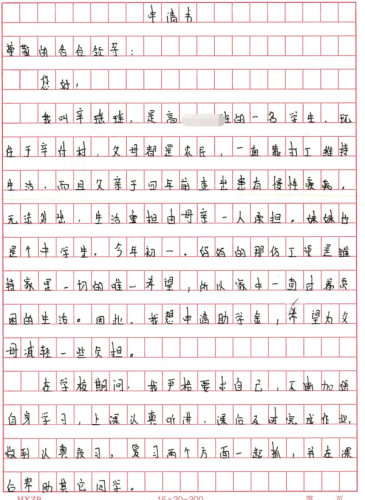 申请书
尊敬的各位领导：
您好，
我叫辛瑶瑶，是高 班的一名学生，现
住于辛付村，父母都是农民，一直靠打工维持
生活，而且父亲于前年前查出患有慢性疾病。
无法务农，生活重担由母亲一人承担。妹妹也
是个中学生。今年初一。妈妈的那份工资是维
持家里一切的唯一希望，所以家中一直过着贫
困的生活。因此，我想申请助学金，希望为父
母减轻一些负担。
在学校期间，我严格要求自己，不断加强
自身学习，上课认真听讲，课后及时完成作业，
做到认真预习，复习两个方面一起抓，并在课
后帮助其它同学。
15×20=300
第 页